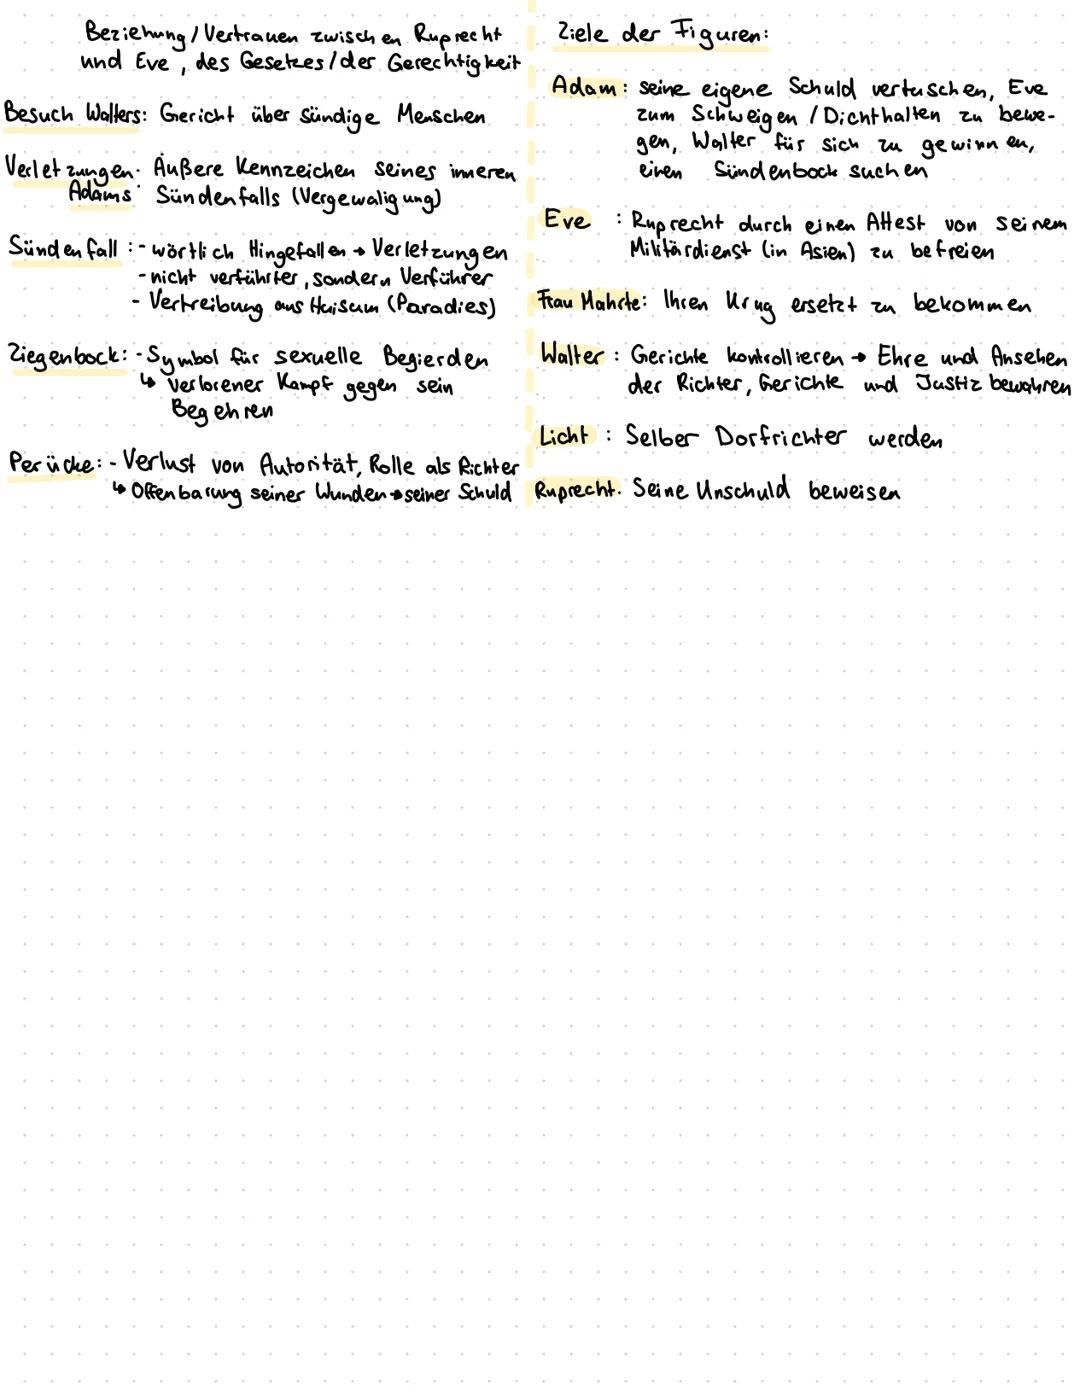 Beziehung / Vertrauen zwischen Ruprecht
und Eve, des Gesetzes / der Gerechtigkeit
Besuch Walters: Gericht über sündige Menschen
Verletzungen: Äußere Kennzeichen seines inneren
Adams Sündenfalls (Vergewaligung)
Sündenfall: - wörtlich Hingefallen → Verletzungen
- nicht verführter, sondern Verführer
- Vertreibung aus Huisum (Paradies)
Ziegenbock: - Symbol für sexuelle Begierden
↳ verlorener Kampf gegen sein
Begehren
Perücke: - Verlust von Autorität, Rolle als Richter
↳ Offenbarung seiner Wunden → seiner Schuld
Ziele der Figuren:
Adam: seine eigene Schuld vertuschen, Eve
zum Schweigen / Dichthalten zu bewe-
gen, Walter für sich zu gewinnen,
einen Sündenbock suchen
Eve : Ruprecht durch einen Attest von seinem
Militärdienst (in Asien) zu befreien
Frau Mahrte: Ihren Krug ersetzt zu bekommen
Walter : Gerichte kontrollieren → Ehre und Ansehen
der Richter, Gerichte und Justiz bewahren
Licht : Selber Dorfrichter werden
Ruprecht: Seine Unschuld beweisen